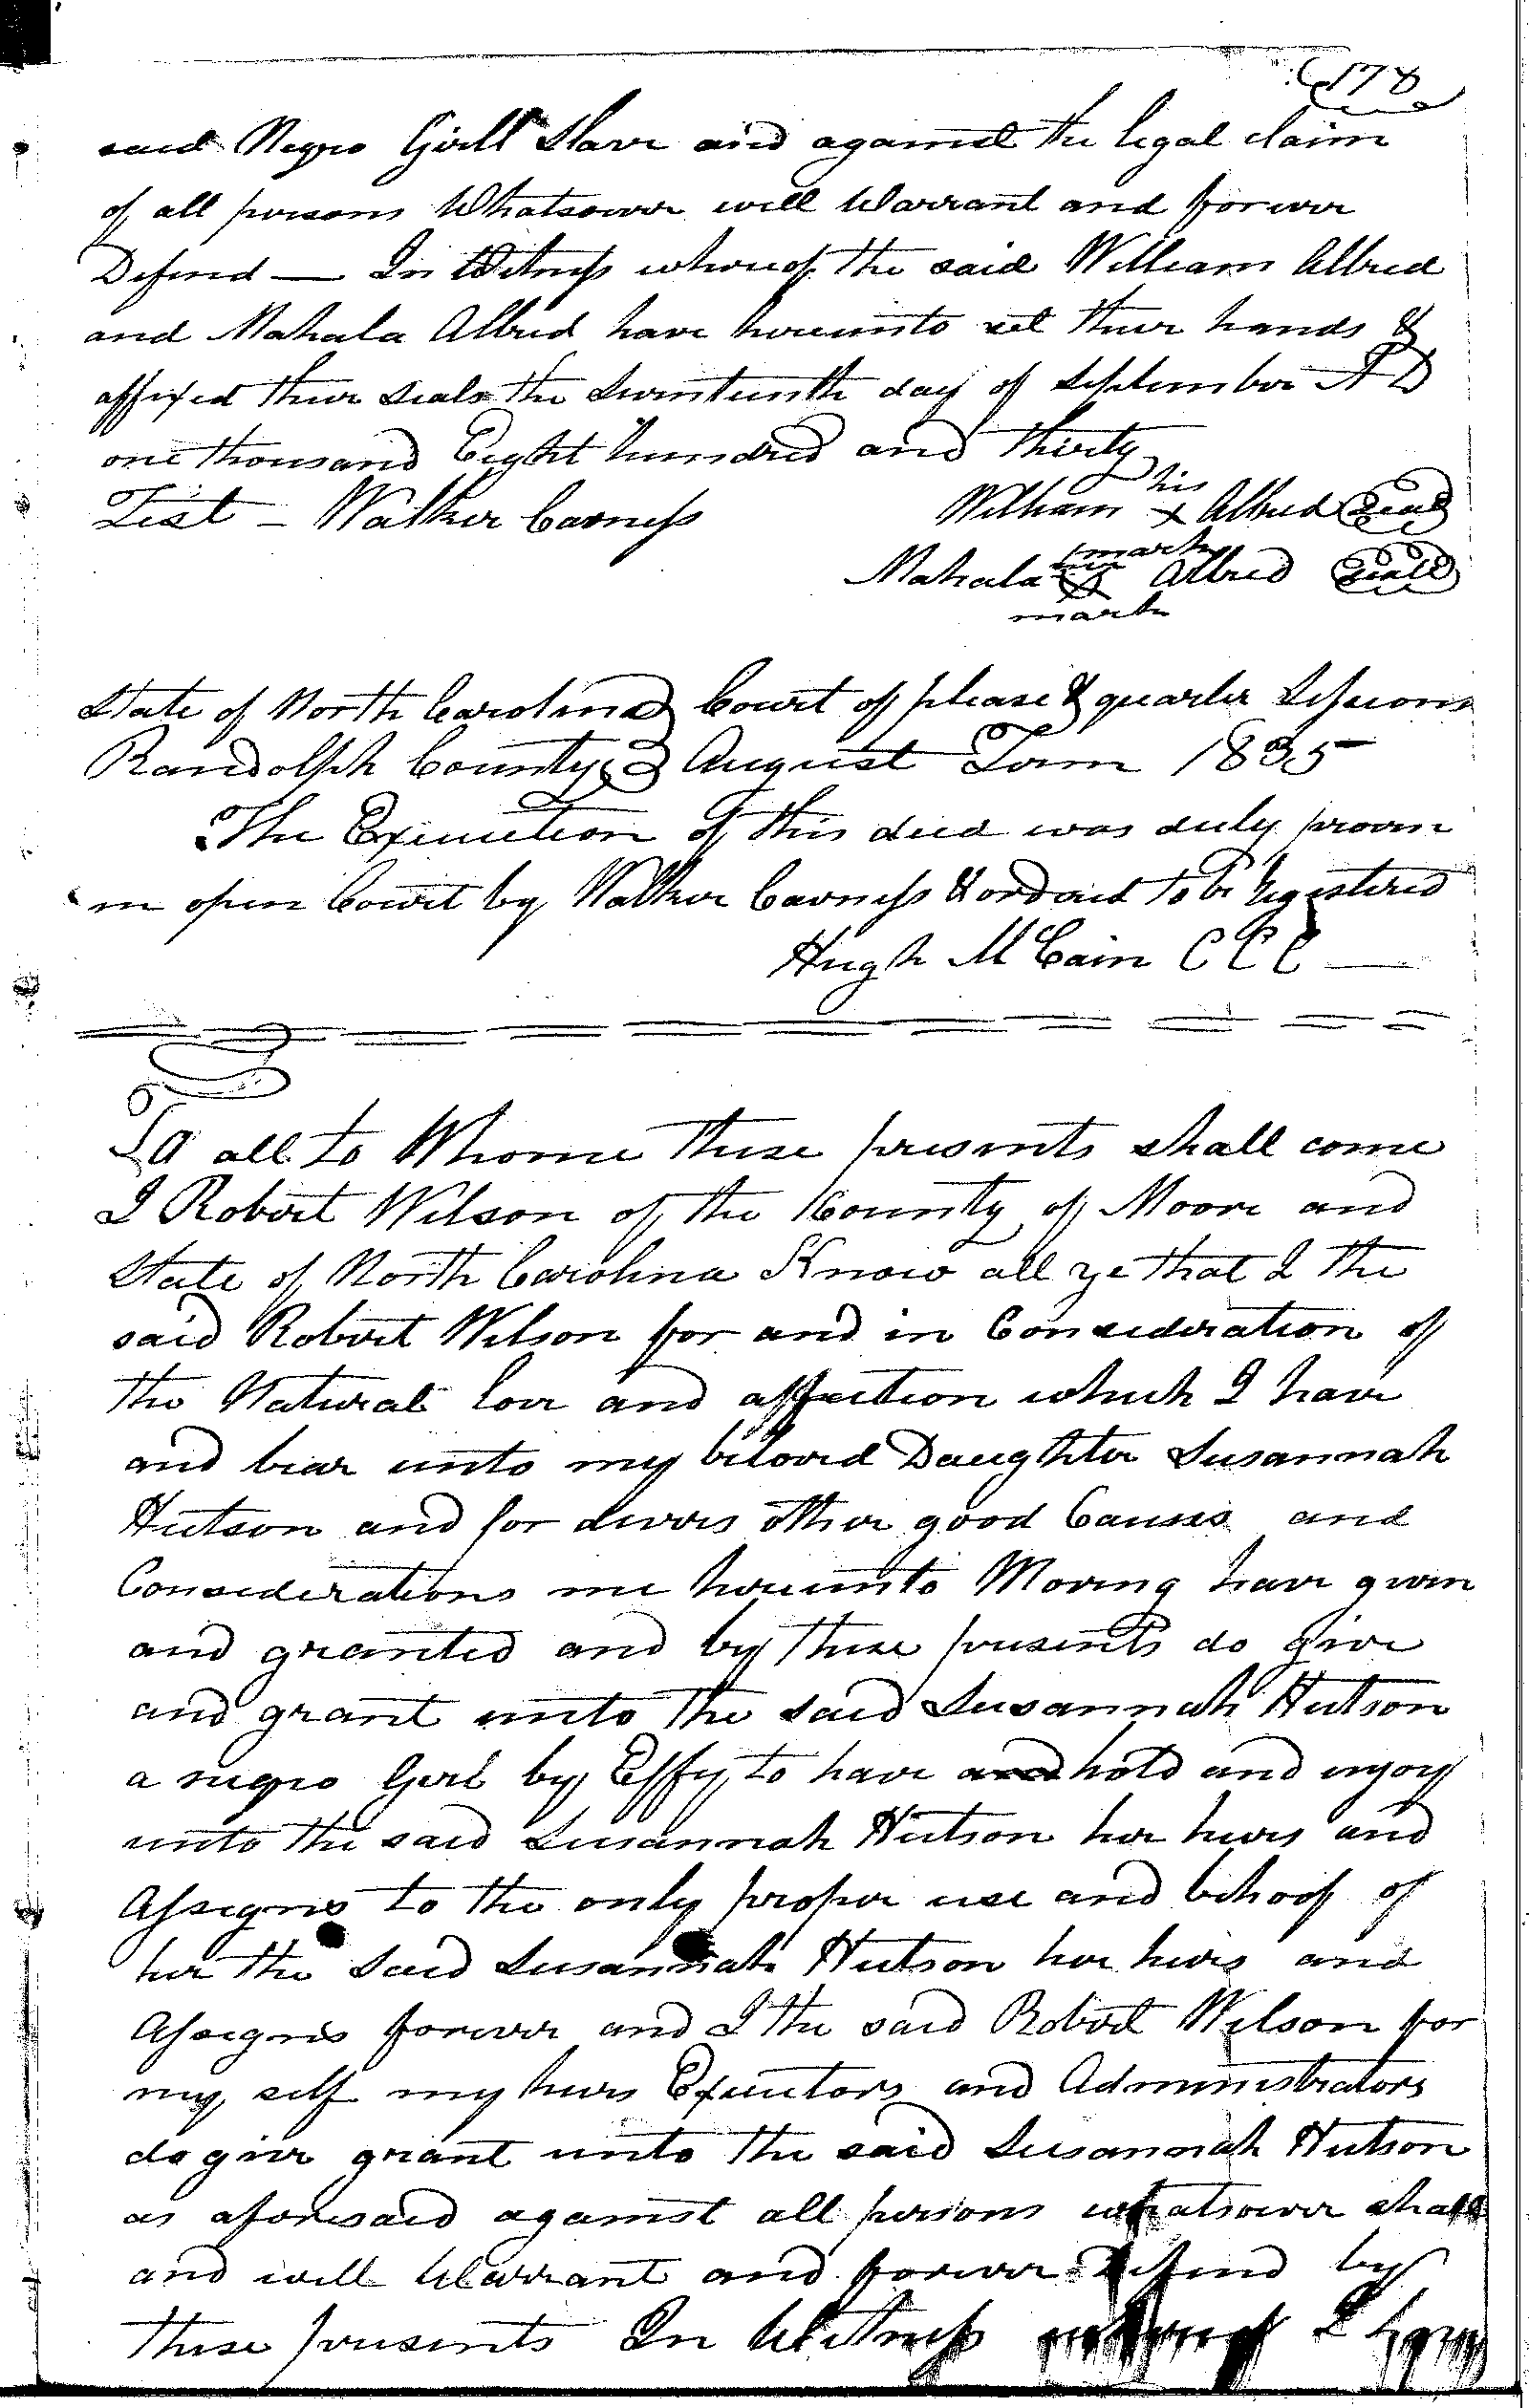 178
said Negro Girll Slave and against the legal claim
of all persons Whatsoever will Warrant and forever
Defend — In Witness whereof the said William Allred
and Mahala Allred have hereunto set their hands &
affixed their seals the Seventeenth day of September A D
one thousand Eight hundred and thirty
Test - Walker Carness William his x mark Allred Seal
Mahala her x mark Allred Seall
State of North Carolina } Court of please & quarter Sessions
Randolph County } August Term 1835
The Execution of this deed was duly proven
in open Court by Walker Carness & ordered to be Registered
Hugh McCain CCC
To all to Whome these presents shall come
I Robert Wilson of the County of Moore and
State of North Carolina Know all ye that I the
said Robert Wilson for and in Consideration of
the Natural love and affection which I have
and bear unto my beloved Daughter Susannah
Hutson and for divers other good Causes and
Considerations me hereunto Moving have given
and granted and by these presents do give
and grant unto the said Susannah Hutson
a negro Girl by Effy to have and hold and enjoy
unto the said Susannah Hutson her heirs and
Assigns to the only proper use and behoof of
her the said Susannah Hutson her heirs and
Assigns forever and I the said Robert Wilson for
my self my heirs Executors and Administrators
do give grant unto the said Susannah Hutson
as aforesaid against all persons whatsoever shall
and will Warrant and forever Defend by
these presents In Witness whereof I have